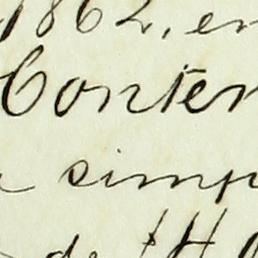 1862, en
Conter
simp
de